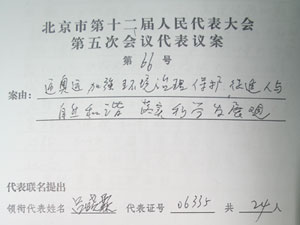 北京市第十二届人民代表大会
第五次会议代表议案
第 66 号
案由: 迎奥运加强环境治理保护,促进人与
自然和谐 落实科学发展观
代表联名提出
领衔代表姓名 吕 代表证号 06335 共 24 人